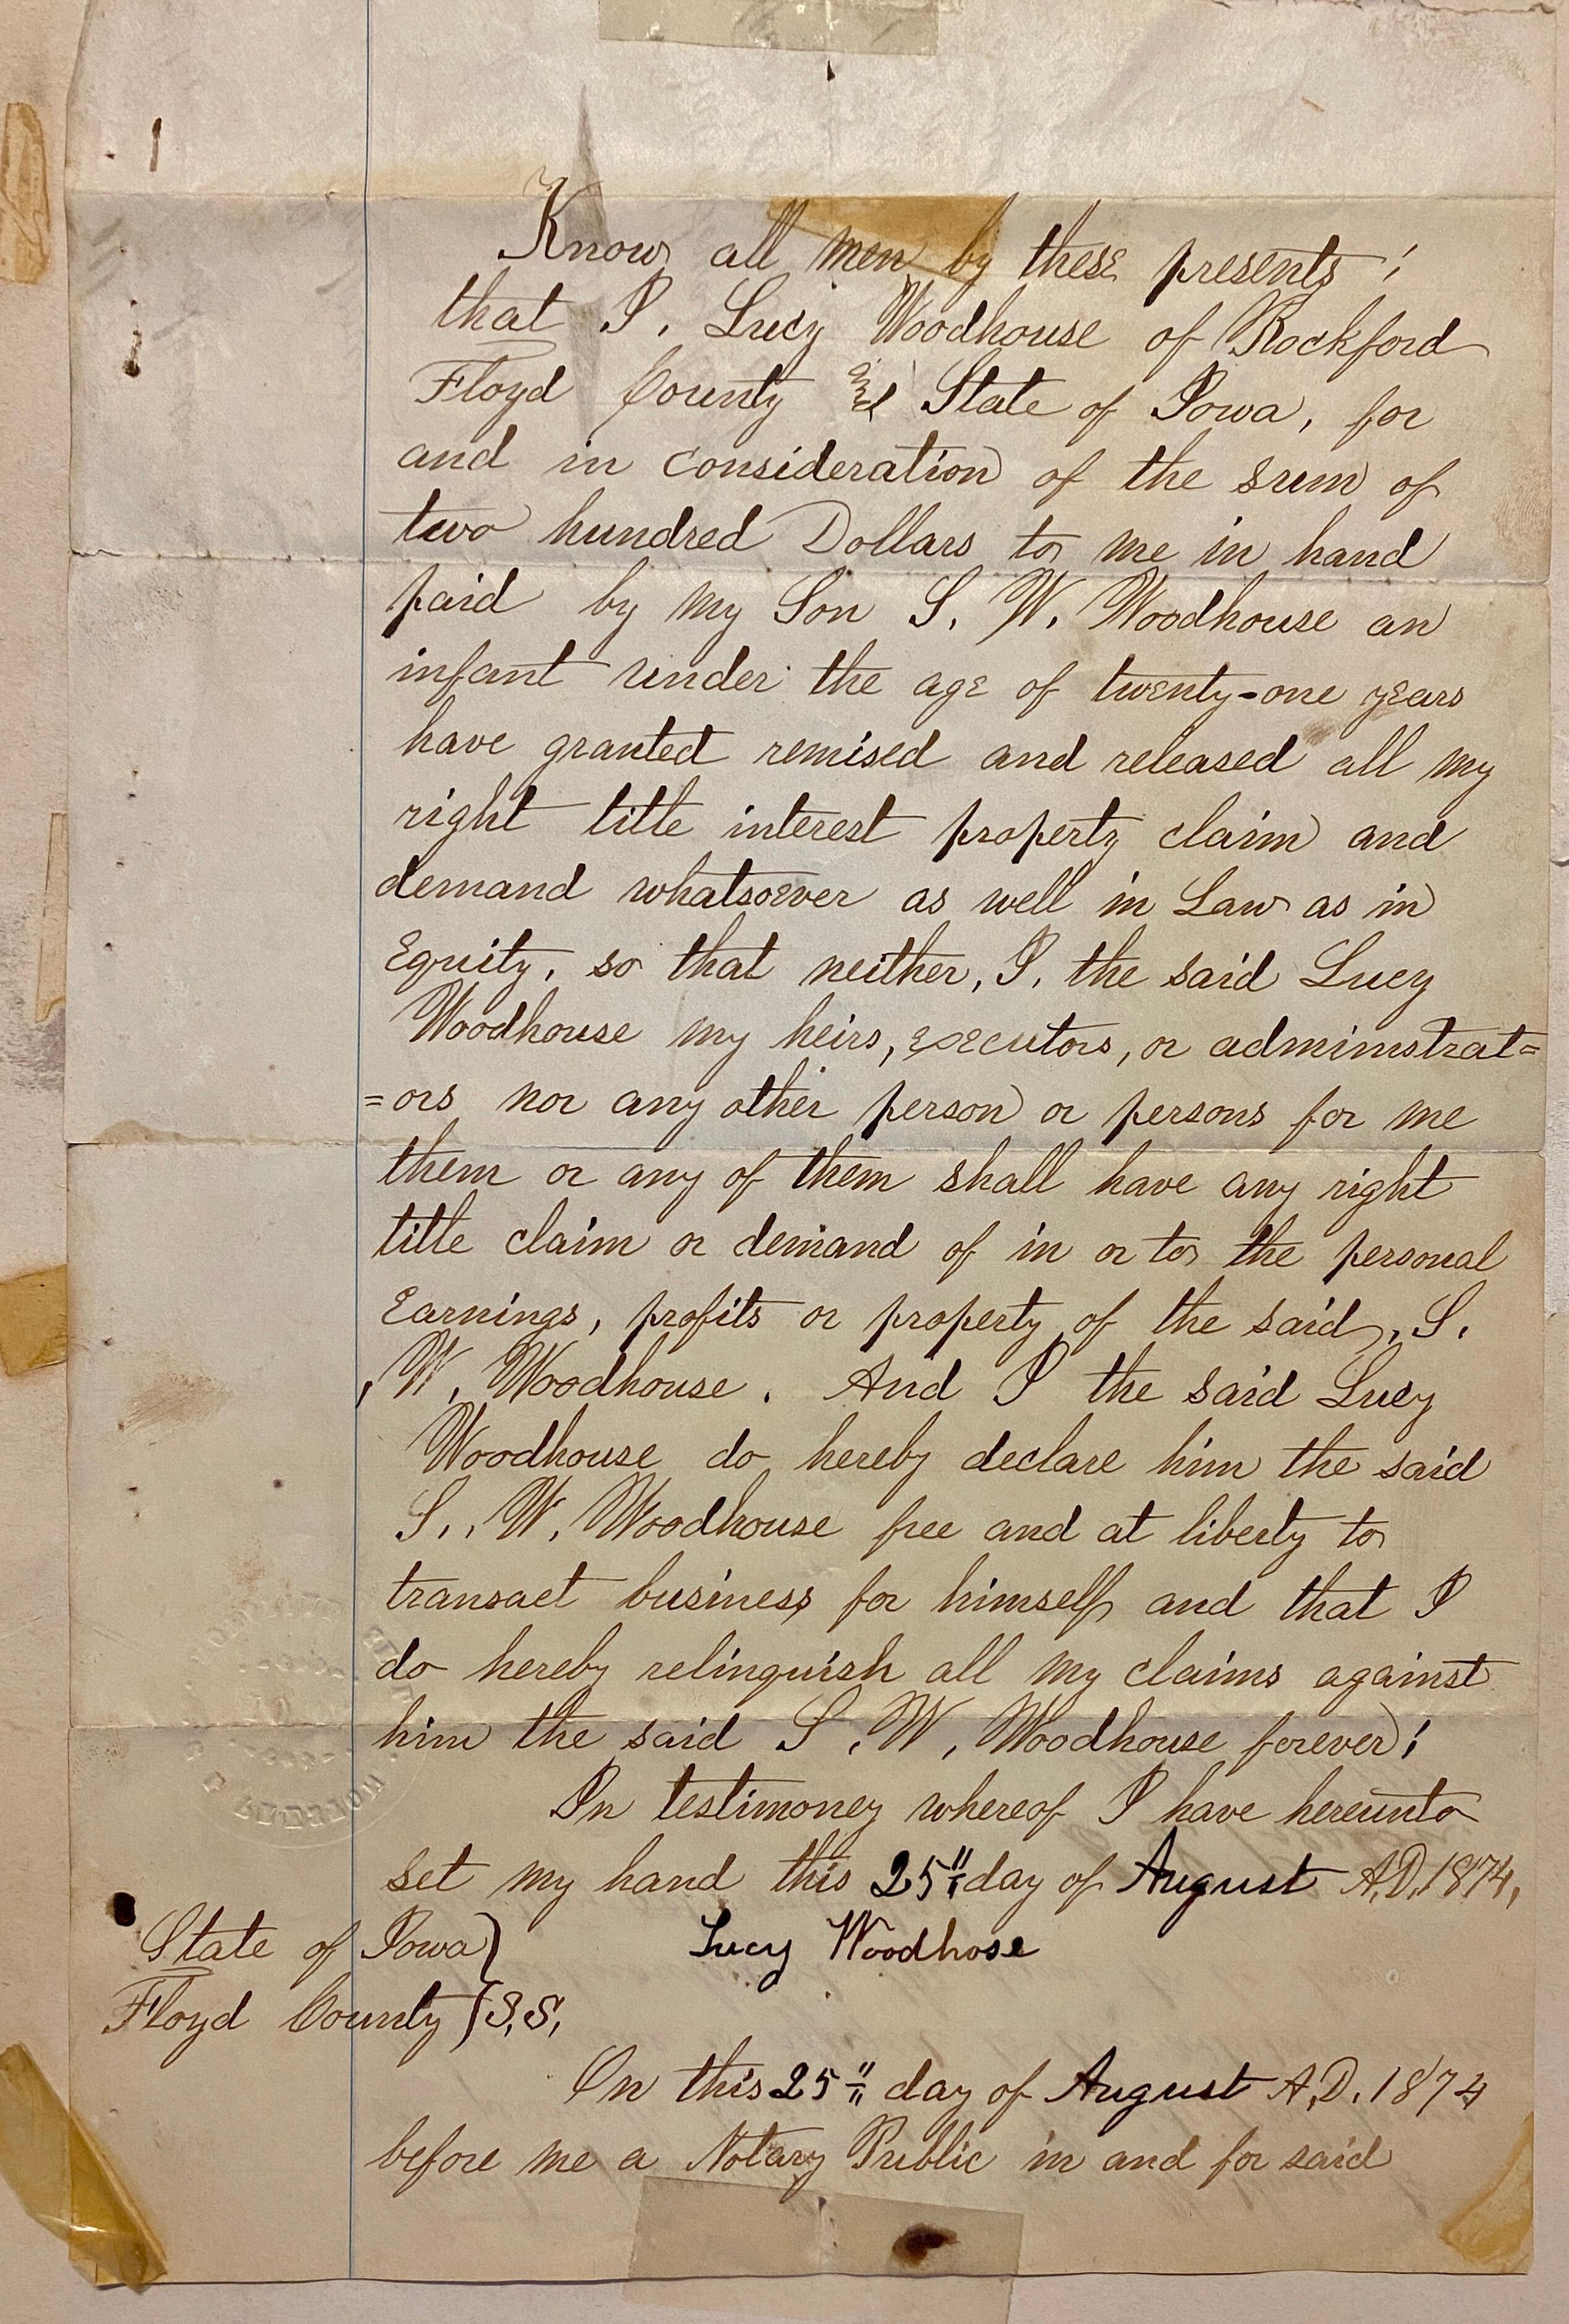 Know all men by these presents;
that I. Lucy Woodhouse of Rockford
Floyd County & State of Iowa, for
and in consideration of the sum of
two hundred Dollars to me in hand
paid by my Son S. W. Woodhouse an
infant under the age of twenty-one years
have granted remised and released all my
right title interest property claim and
demand whatsoever as well in Law as in
Equity, so that neither, I, the said Lucy
Woodhouse my heirs, executors, or administrat=
=ors nor any other person or persons for me
them or any of them shall have any right
title claim or demand of in or to the personal
Earnings, profits or property of the said, S.
W. Woodhouse. And I the said Lucy
Woodhouse do hereby declare him the said
S. W. Woodhouse free and at liberty to
transact business for himself and that I
do hereby relinquish all my claims against
him the said S. W. Woodhouse forever;
In testimoney whereof I have hereunto
set my hand this 25" day of August A.D. 1874,
Lucy Woodhose
State of Iowa }
Floyd County } S.S.
On this 25" day of August A.D. 1874
before me a Notary Public in and for said